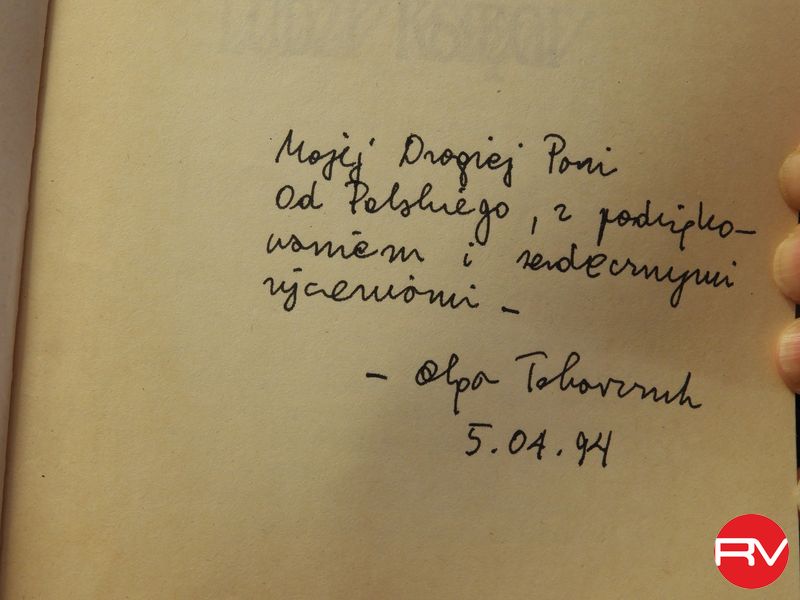 Mojej Drogiej Pani
Od Polskiego, z podzięko-
waniem i serdecznymi
życzeniami –
– Olga Tokarczuk
5.04.94
RV